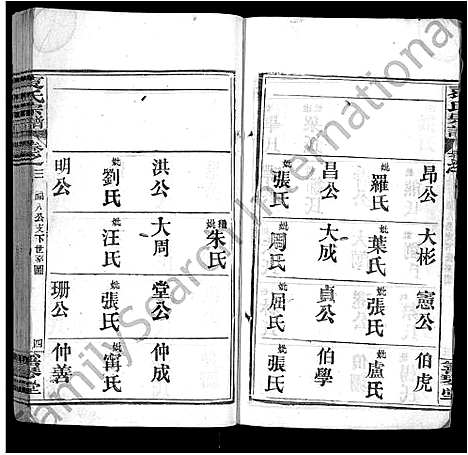 昂公 大彬 憲公 伯虎
妣羅氏 妣葉氏 妣張氏 妣盧氏
昌公 大成 貞公 伯學
妣張氏 妣周氏 妣屈氏 妣張氏
繼妣朱氏
洪公 大周 堂公 仲成
妣劉氏 妣汪氏 妣張氏 妣甯氏
明公 珊公 仲善
袁氏宗譜 卷之三 公支下世系圖 四
FamilySearch International